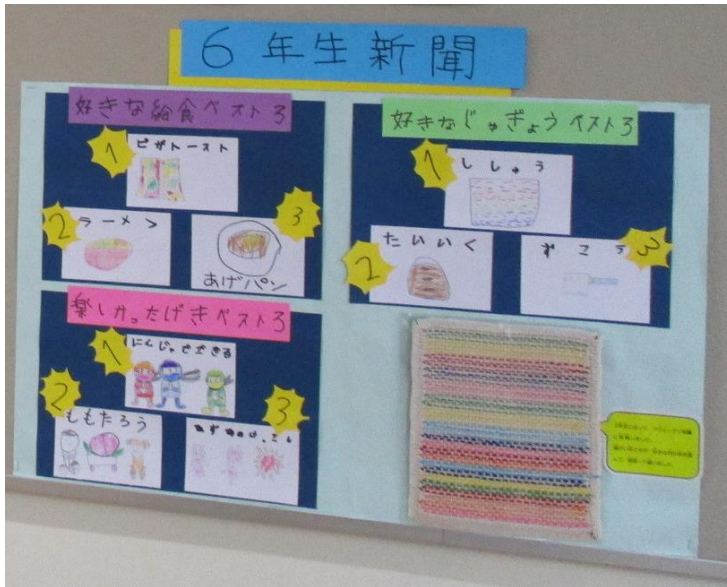 6年生新聞
好きな給食ベスト3
1
ピザトースト
2
ラーメン
3
あげパン
好きなじゅぎょうベスト3
1
ししゅう
2
たいいく
3
ずこう
楽しかったげきベスト3
1
2
ももたろう
3